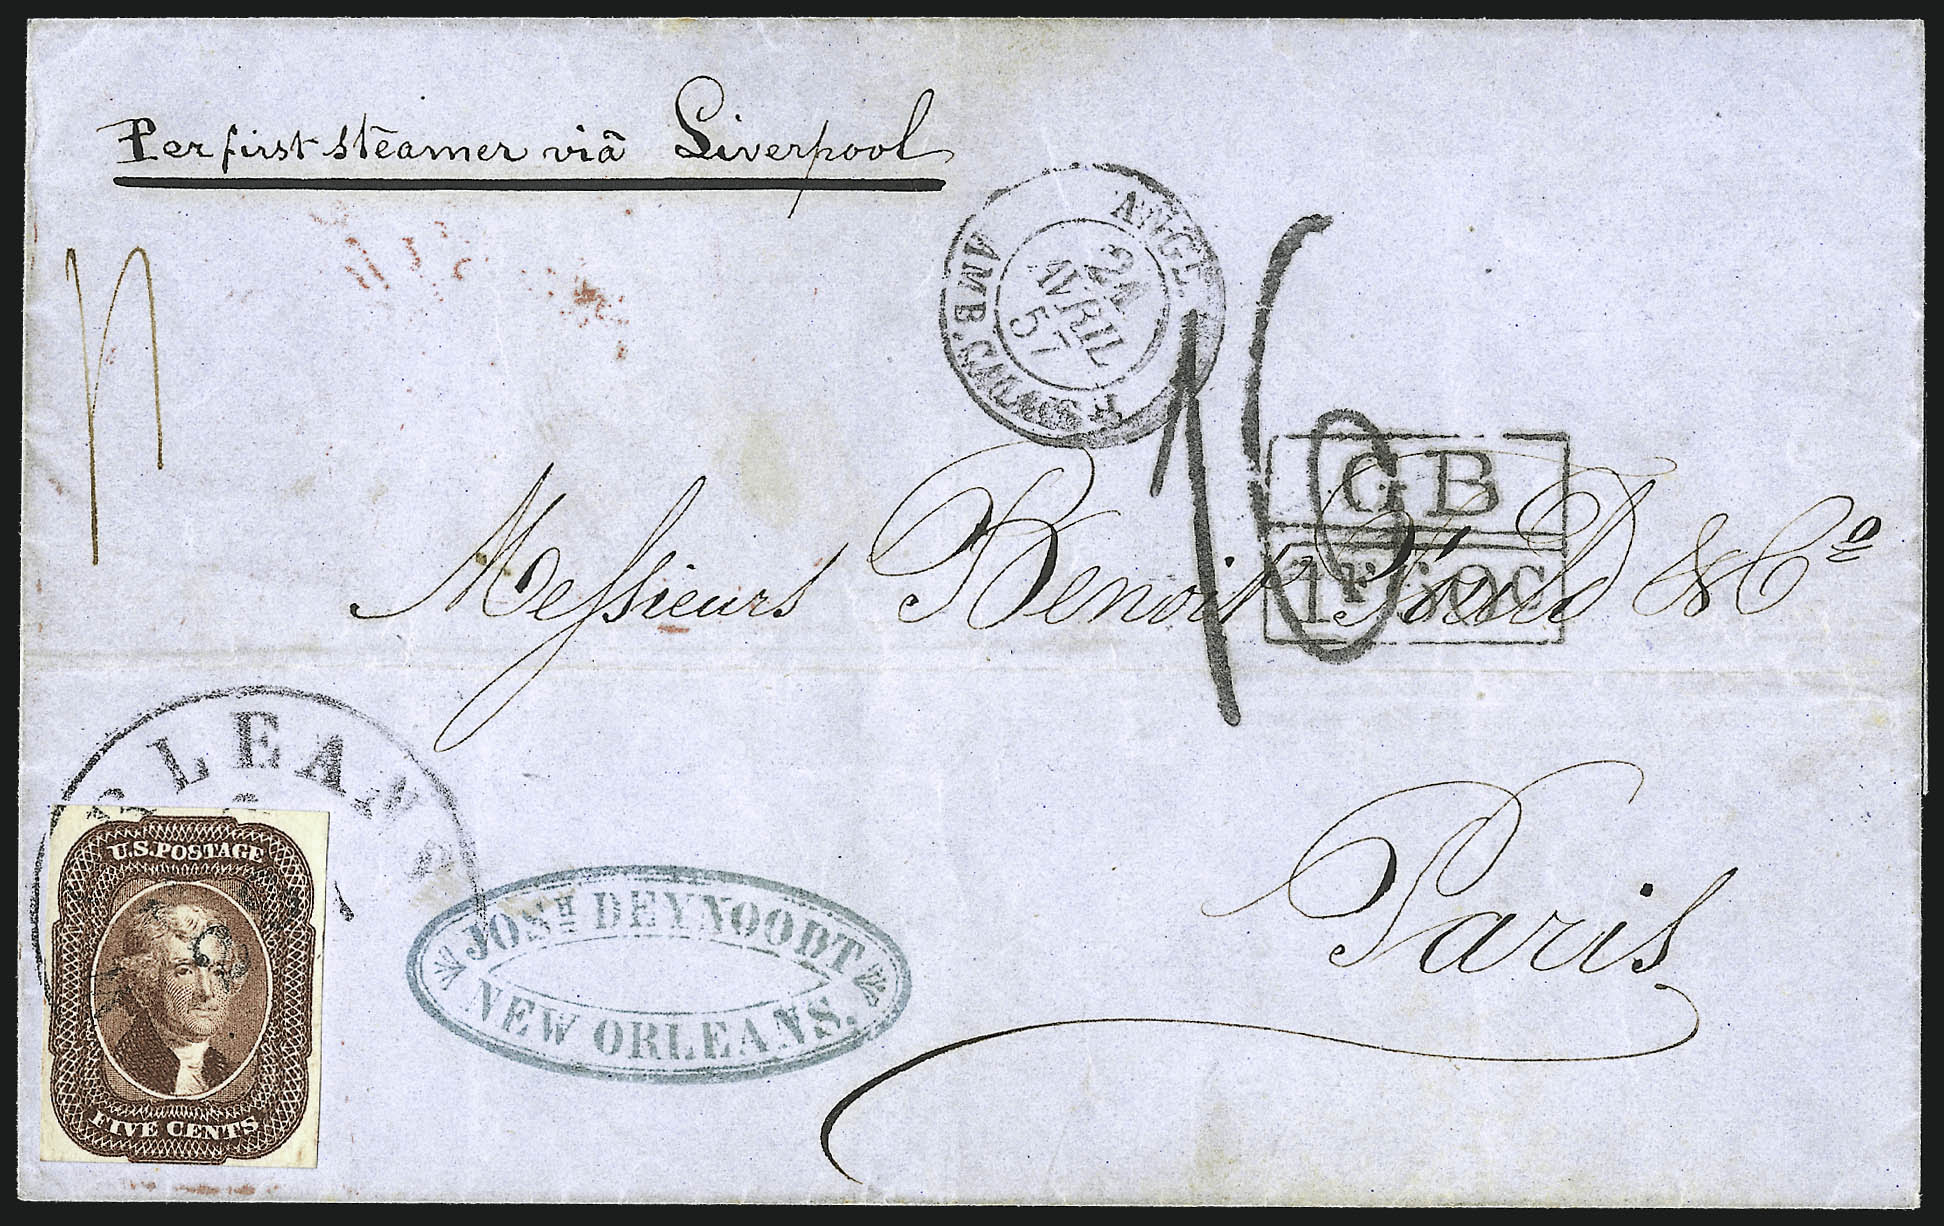 Per first steamer viâ Liverpool
ANGL.
24
AVRIL
57
AMB. CALAIS F
16
GB
1F 60C
Messieurs Benoit Fould & Co
Paris
ORLEANS
U.S. POSTAGE
FIVE CENTS
JOSH DEYNOODT
NEW ORLEANS.